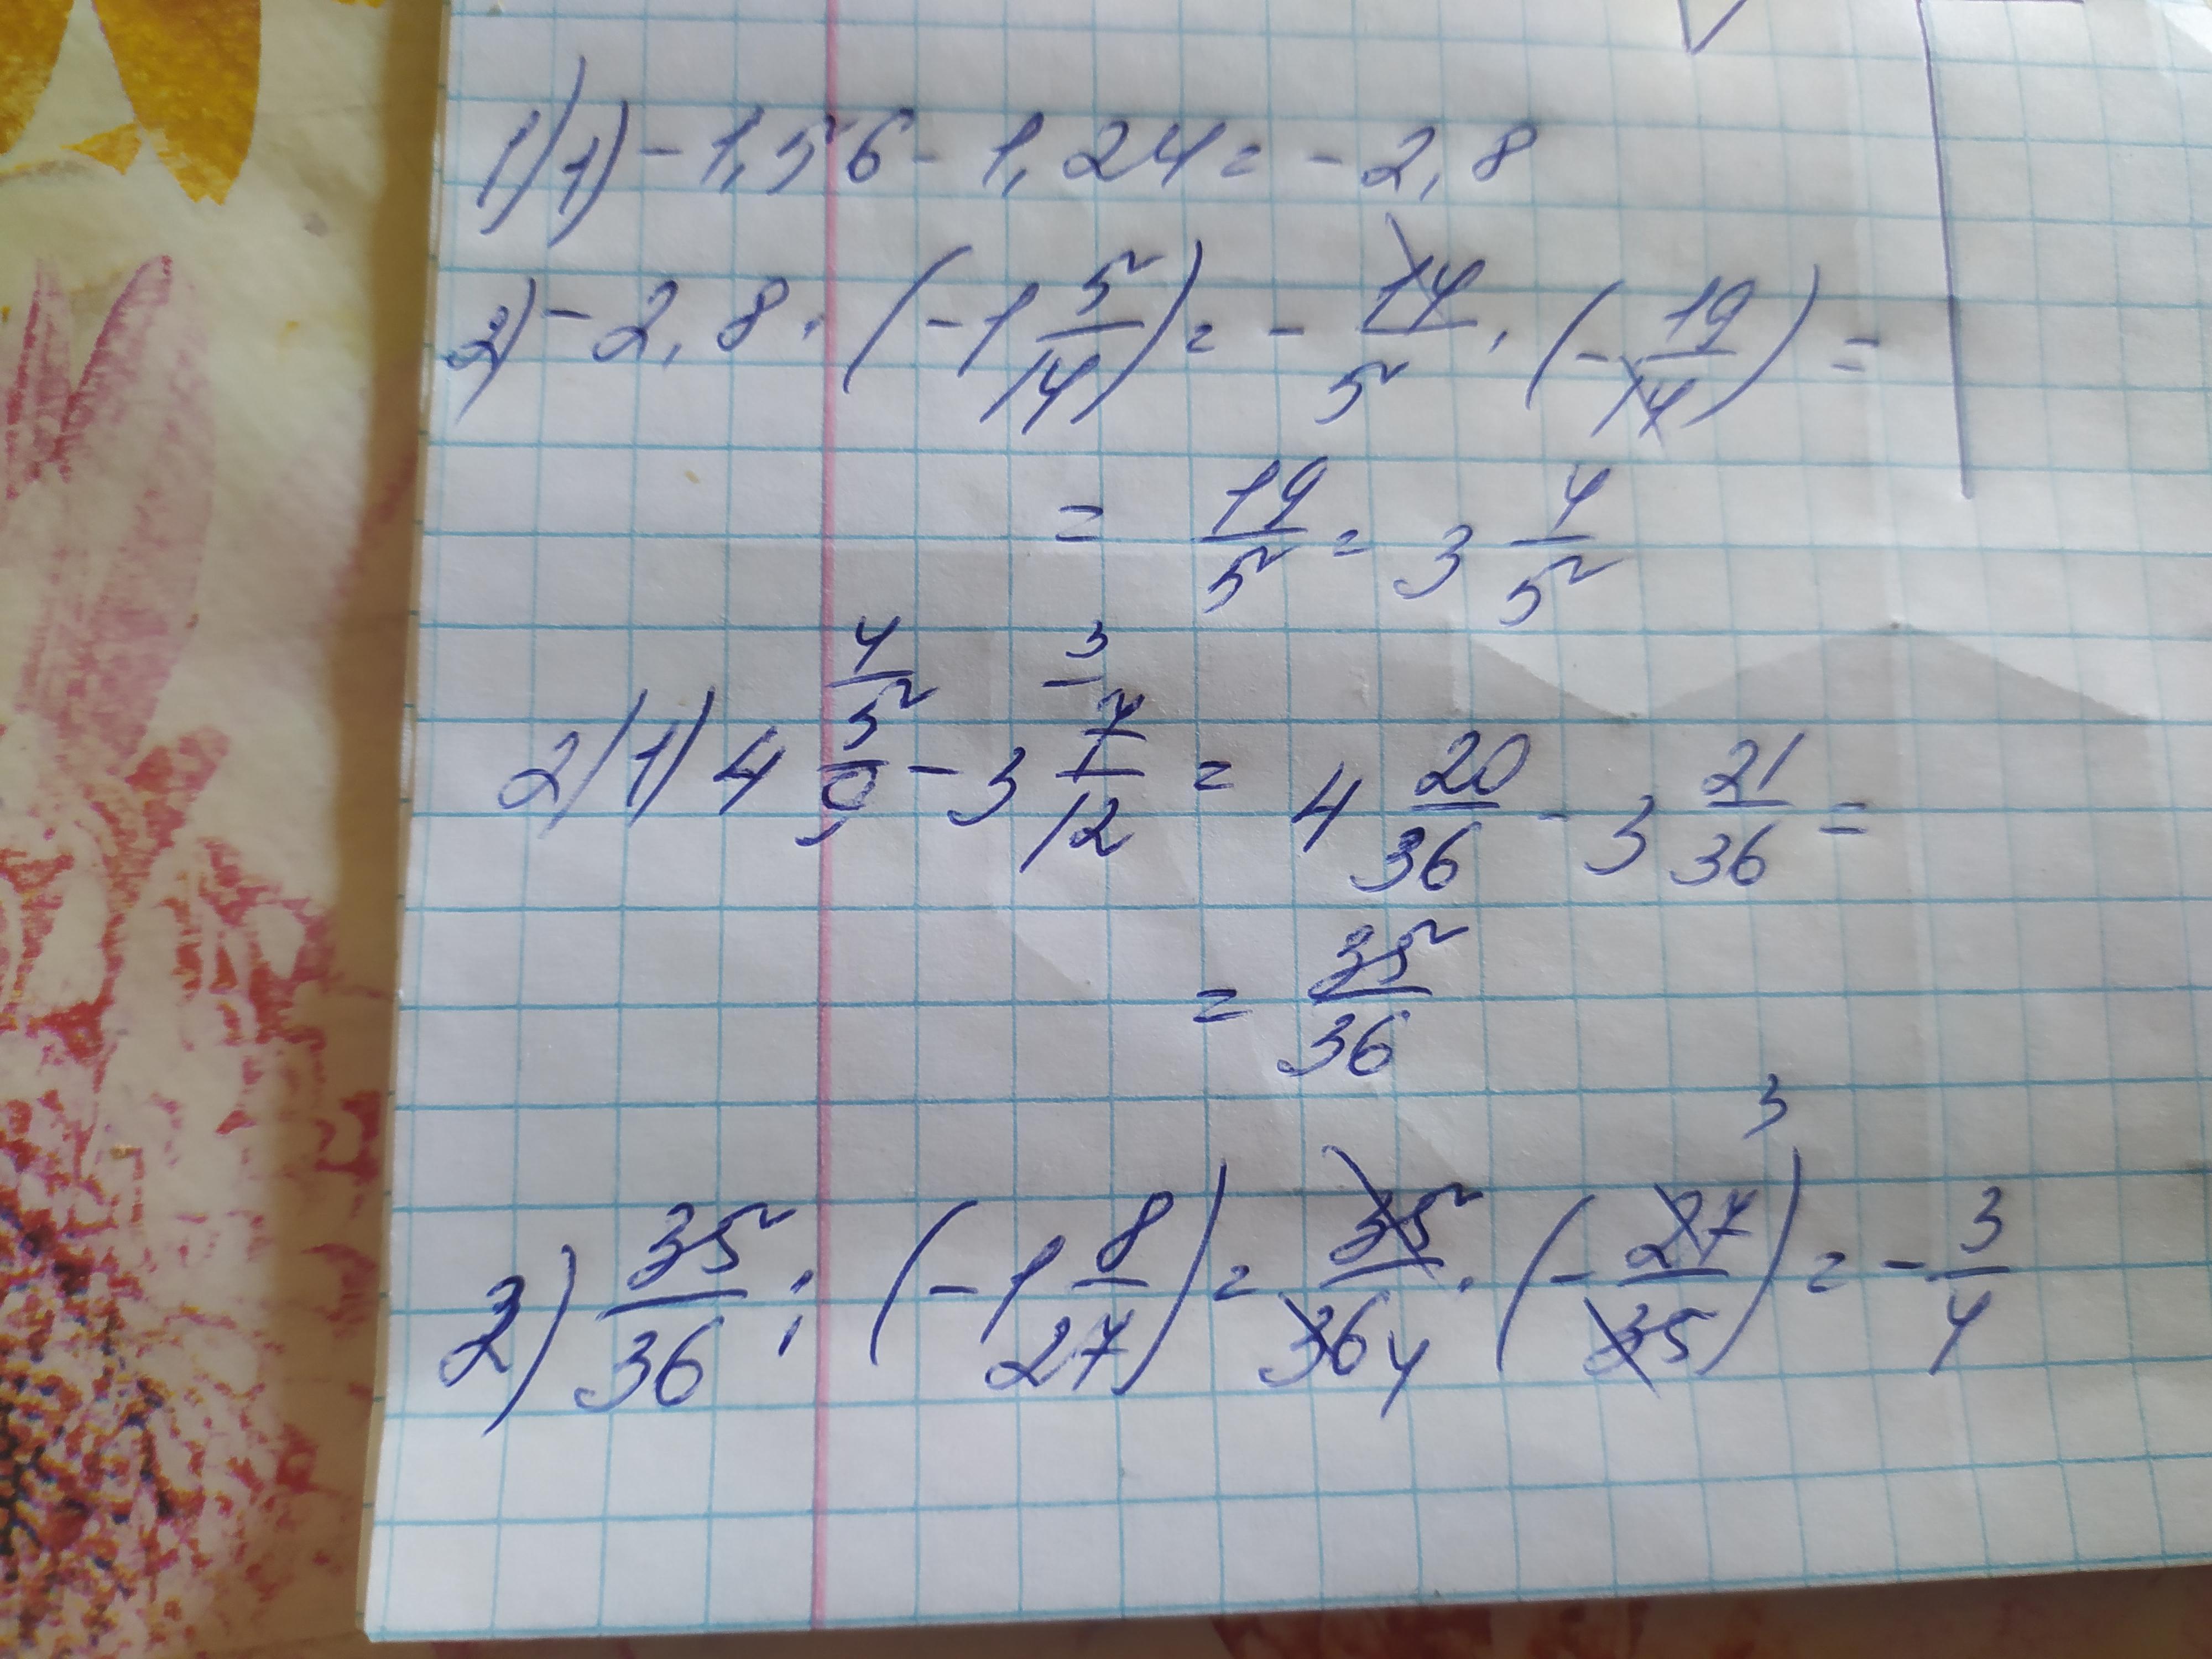 1) 1) - 1,56 - 1,24 = - 2,8
2) - 2,8 · (-1 5/14) = - 14/5 · (- 19/14) =
= 19/5 = 3 4/5
4 3
2) 1) 4 5/9 - 3 7/12 = 4 20/36 - 3 21/36 =
= 35/36
3
2) 35/36 : (-1 8/27) = 35/36 4 · (- 27/35) = - 3/4